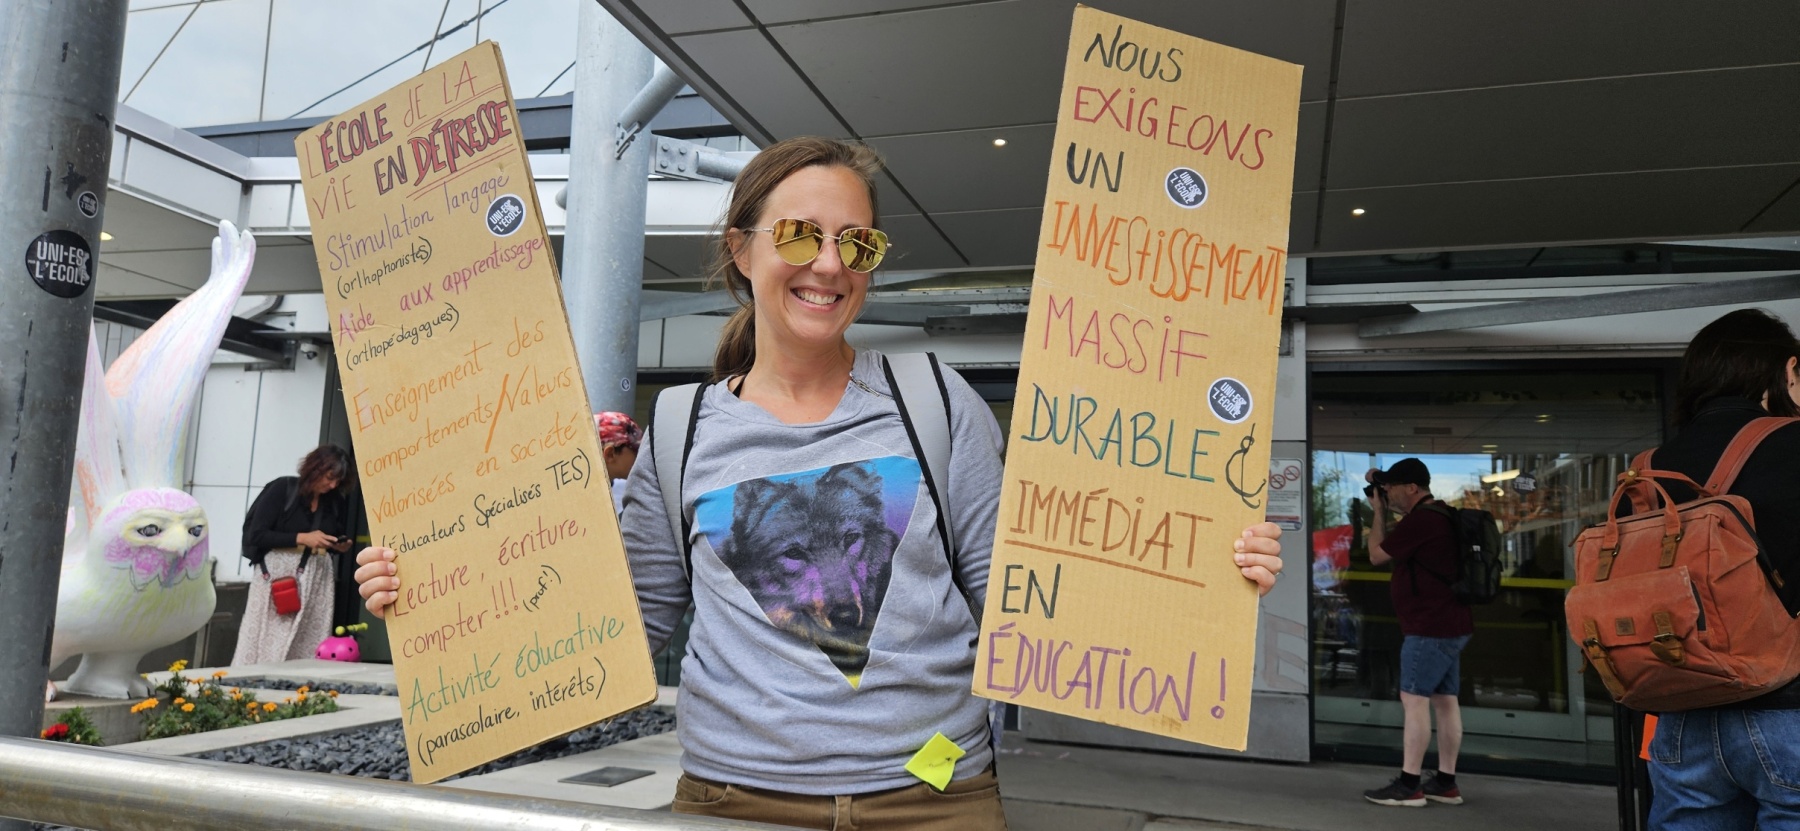 L'ÉCOLE de LA
VIE EN DÉTRESSE
Stimulation langage
(orthophonistes)
Aide aux apprentissage
(orthopédagogues)
Enseignement des
comportements/Valeurs
valorisées en société
(Éducateurs Spécialisés TES)
Lecture, écriture,
compter!!! (prof!)
Activité éducative
(parascolaire, intérêts)
UNI-ES
L'ÉCOLE
NOUS
EXIGEONS
UN
INVESTISSEMENT
MASSIF
DURABLE &
IMMÉDIAT
EN
ÉDUCATION!
UNI-ES
L'ÉCOLE
UNI-ES
L'ÉCOLE
UNI-ES
L'ÉCOLE